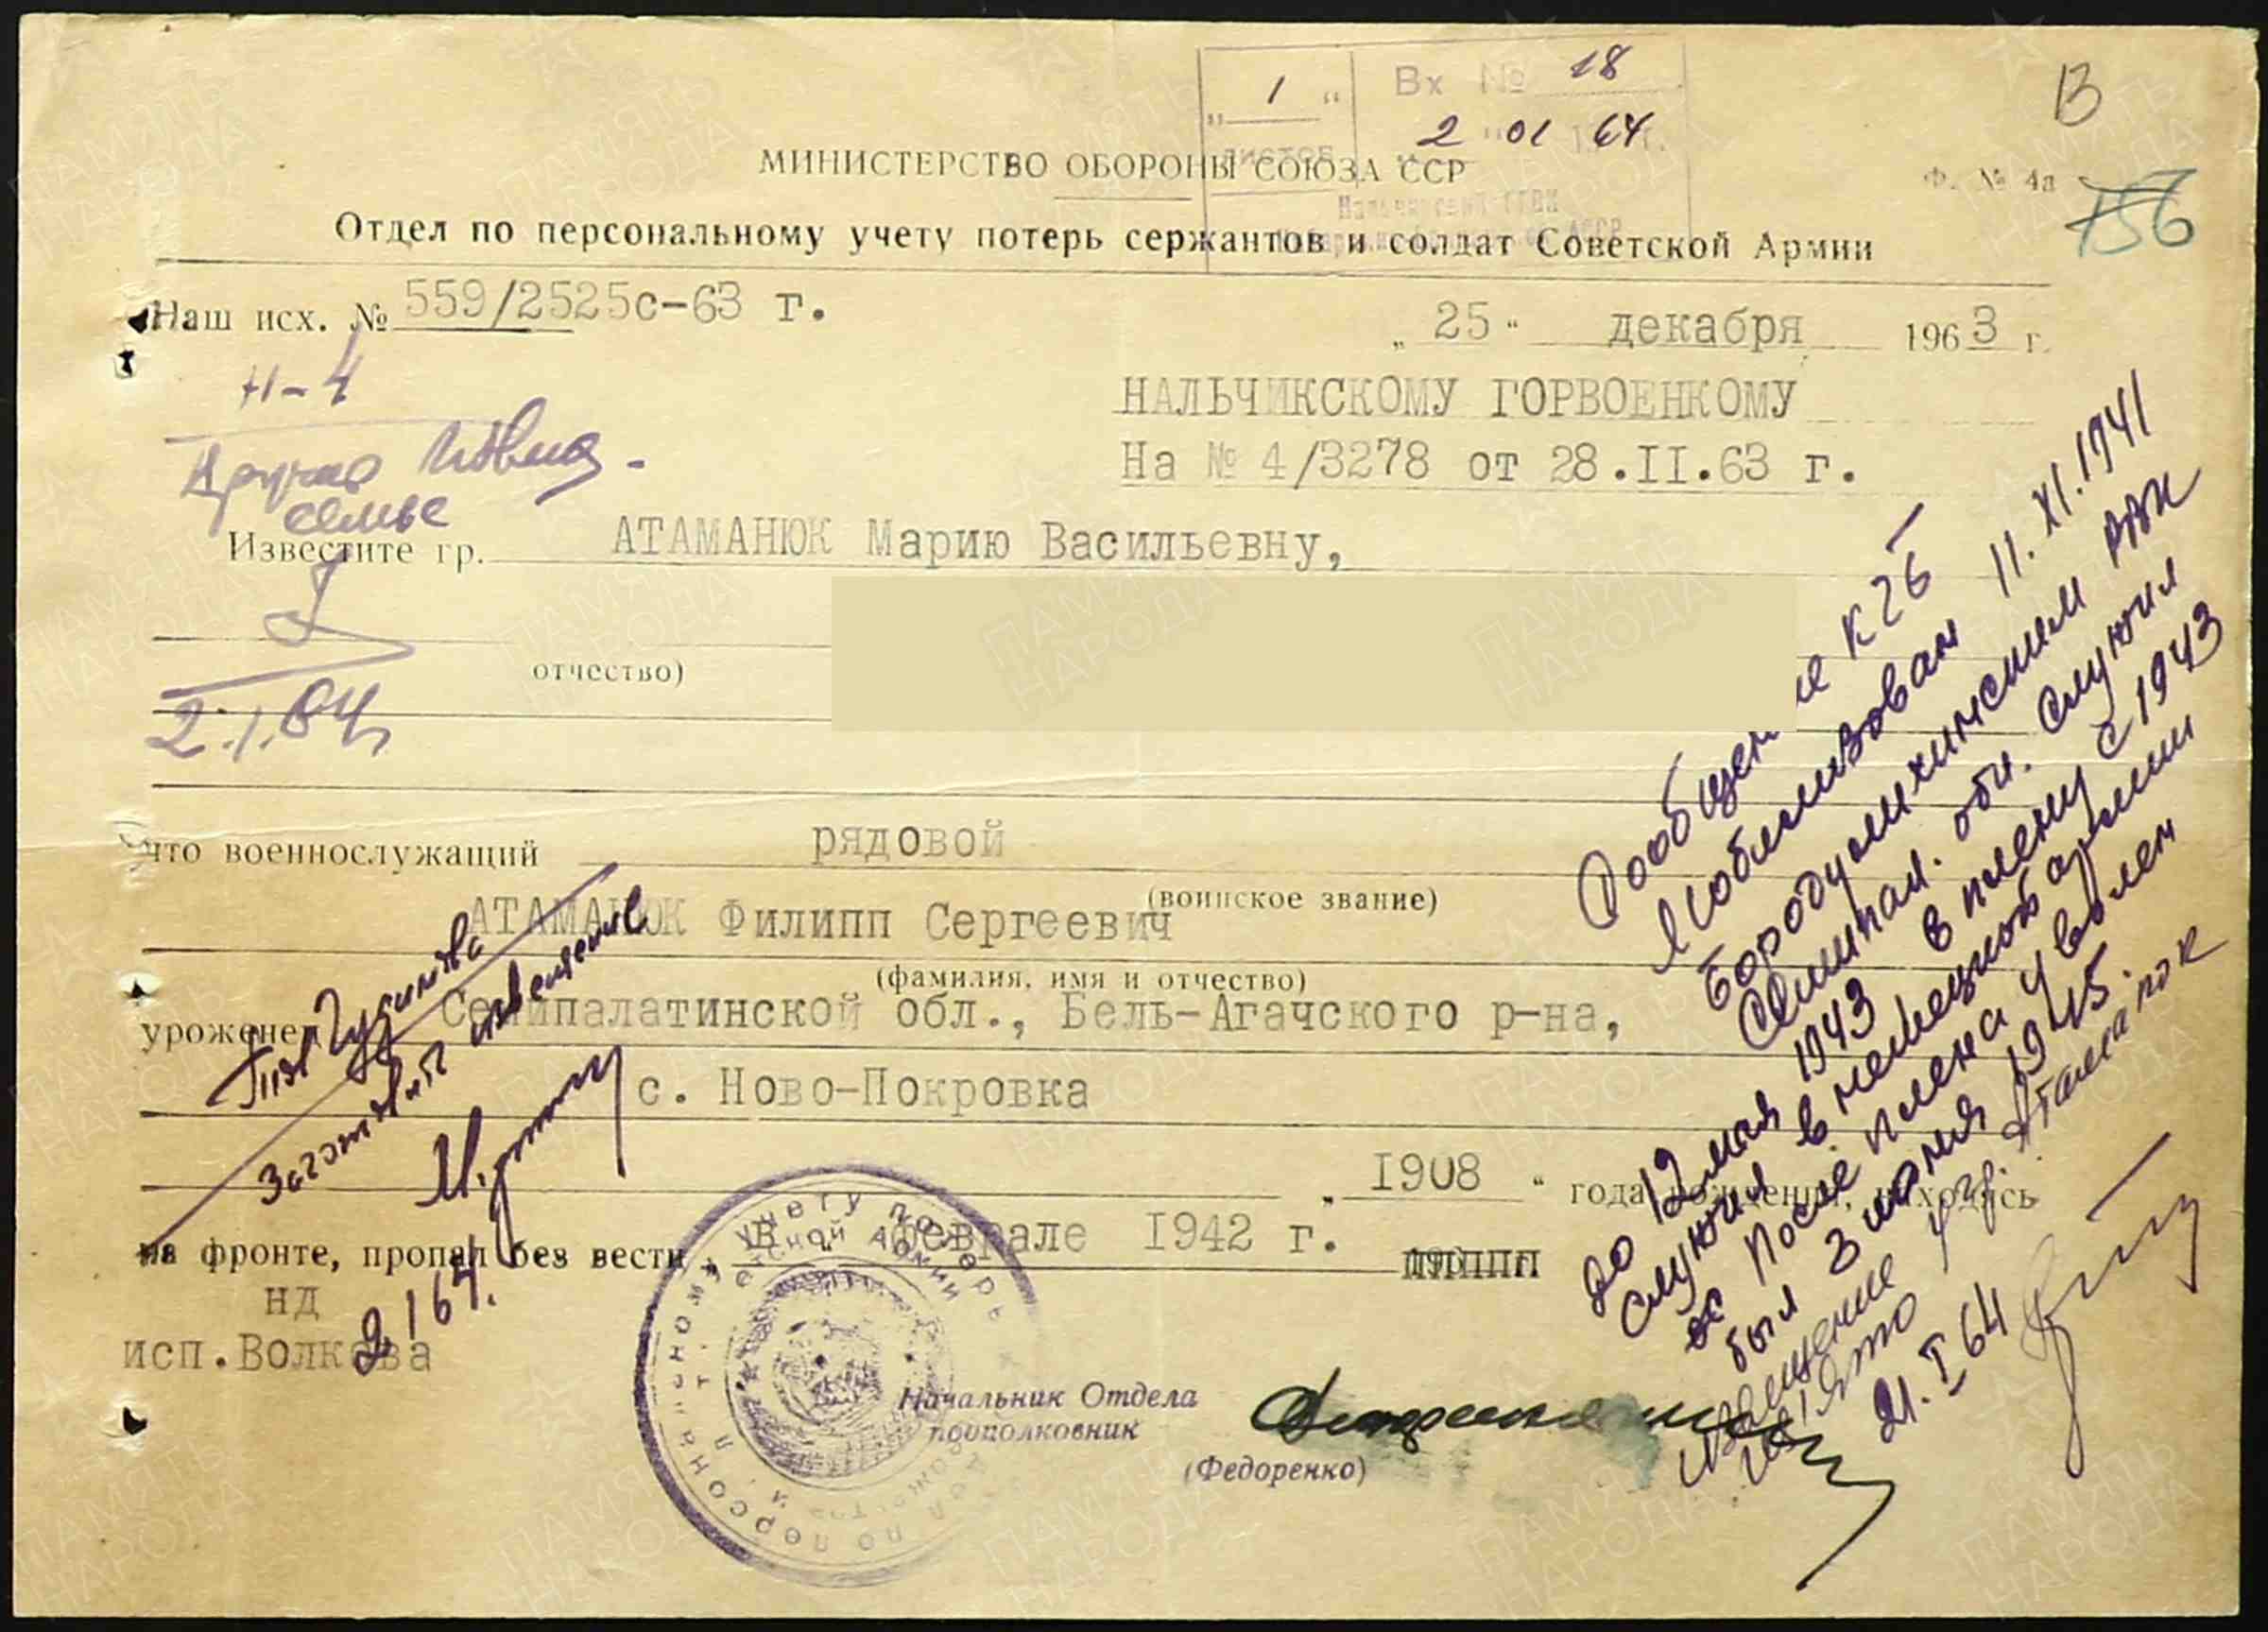 „ 1 “ Вх № 18
листов „ 2 " 01 64 г.
13
МИНИСТЕРСТВО ОБОРОНЫ СОЮЗА ССР
Ф. № 4а
156
Отдел по персональному учету потерь сержантов и солдат Советской Армии
Наш исх. № 559/2525с-63 г.
„ 25 “ декабря 1963 г.
Н-4
НАЛЬЧИКСКОМУ ГОРВОЕНКОМУ
На № 4/3278 от 28.II.63 г.
семье
Известите гр. АТАМАНЮК Марию Васильевну,
отчество)
2.1.64
что военнослужащий рядовой
(воинское звание)
АТАМАНЮК Филипп Сергеевич
(фамилия, имя и отчество)
уроженец Семипалатинской обл., Бель-Агачского р-на,
с. Ново-Покровка
„ 1908 “ года рождения, находясь
на фронте, пропал без вести в феврале 1942 г.
нд
исп.Волкова
Начальник Отдела
подполковник
(Федоренко)
извещение
2 1 64.
Сообщение КГБ
Мобилизован 11.XI.1941
Бородулихинским РВК
Семипал. обл. Служил
до 12 мая 1943 в плену с 1943
служил в немецкой армии
После плена уволен
был 3 июня 1945.
Извещение у гр. Атаманюк
изъято
21.I 64